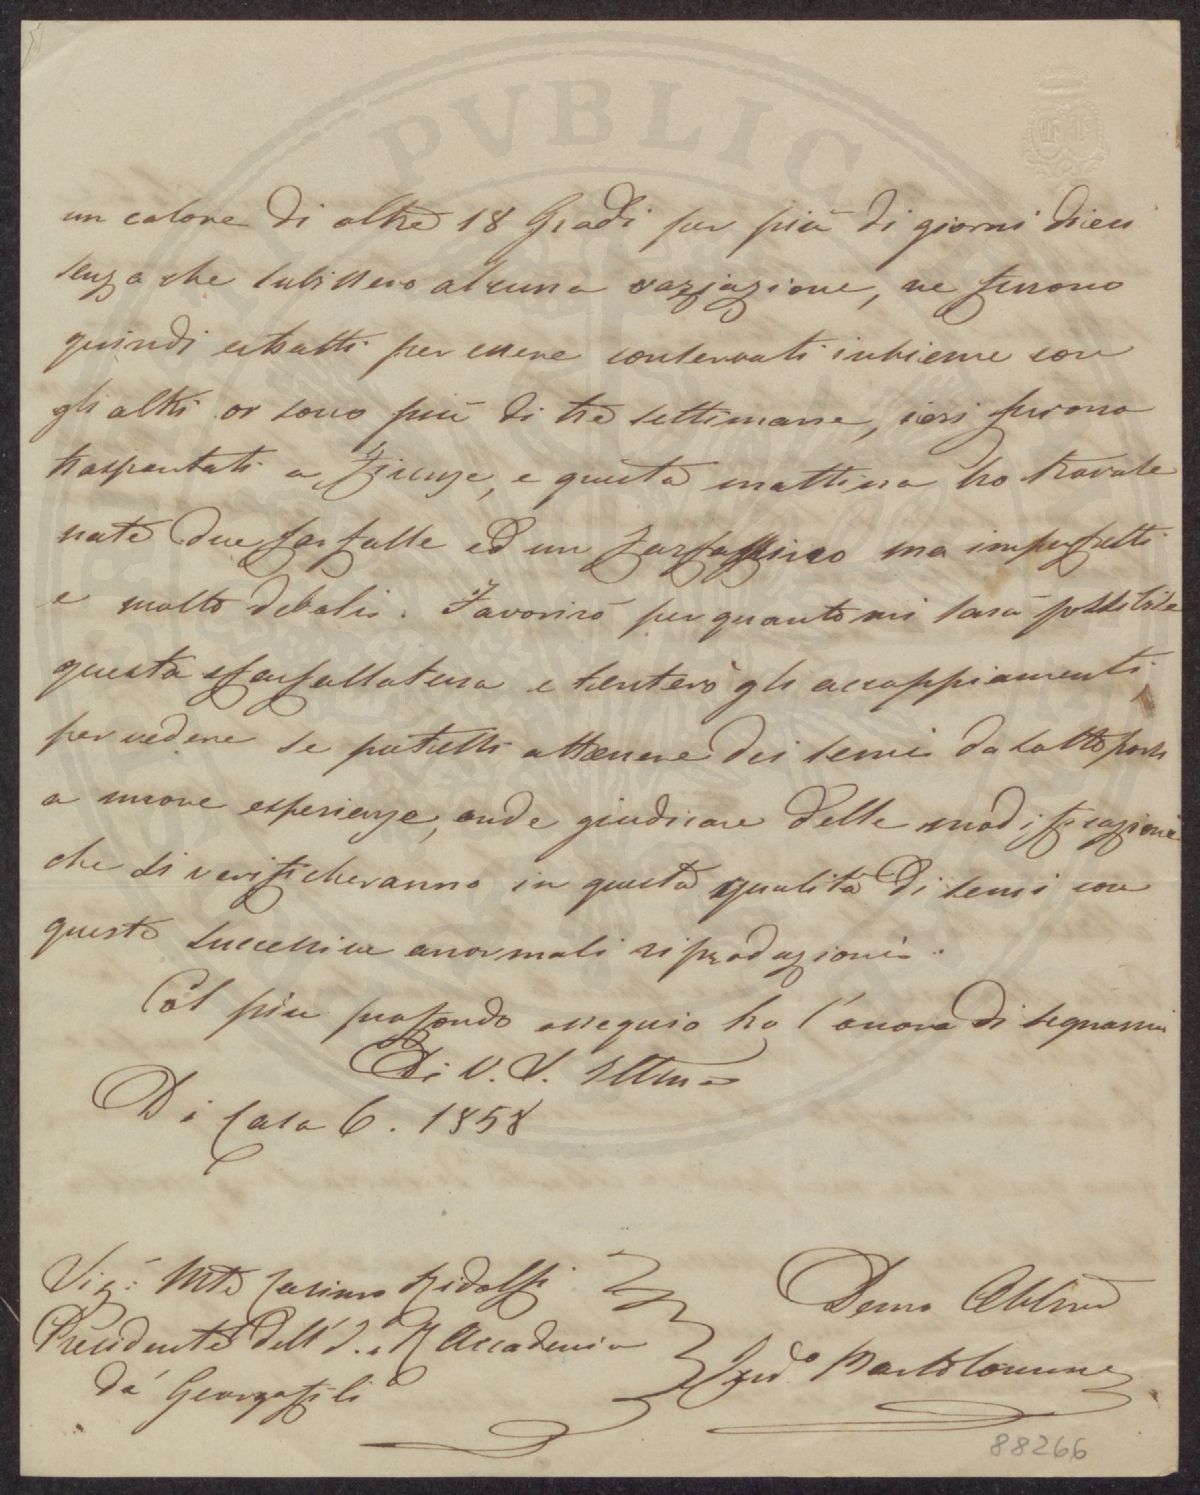 PVBLIC
un calore di oltre 18 Gradi per più di giorni dieci
senza che subissero alcuna variazione, ne furono
quindi estratti per essere conservati insieme con
gli altri or sono più di tre settimane, ieri furono
trasportati a Firenze, e questa mattina ho trovate
nate due farfalle ed un farfallino ma imperfetti
e molto deboli. Favorirò per quanto mi sarà possibile
questa sfarfallatura e tenterò gli accoppiamenti
per vedere se potessi ottenere dei semi da sottoporsi
a nuove esperienze, onde giudicare delle modificazioni
che si verificheranno in questa qualità di semi con
queste successive anormali riproduzioni.
Col più profondo ossequio ho l'onore di segnarmi
Di V. S. Illma
Di Casa 6. 1858
Sig: Mse Cosimo Ridolfi
Presidente dell'I. e R. Accademia
de' Georgofili
Devmo Obblmo
Ferdo Bartolommei
88266